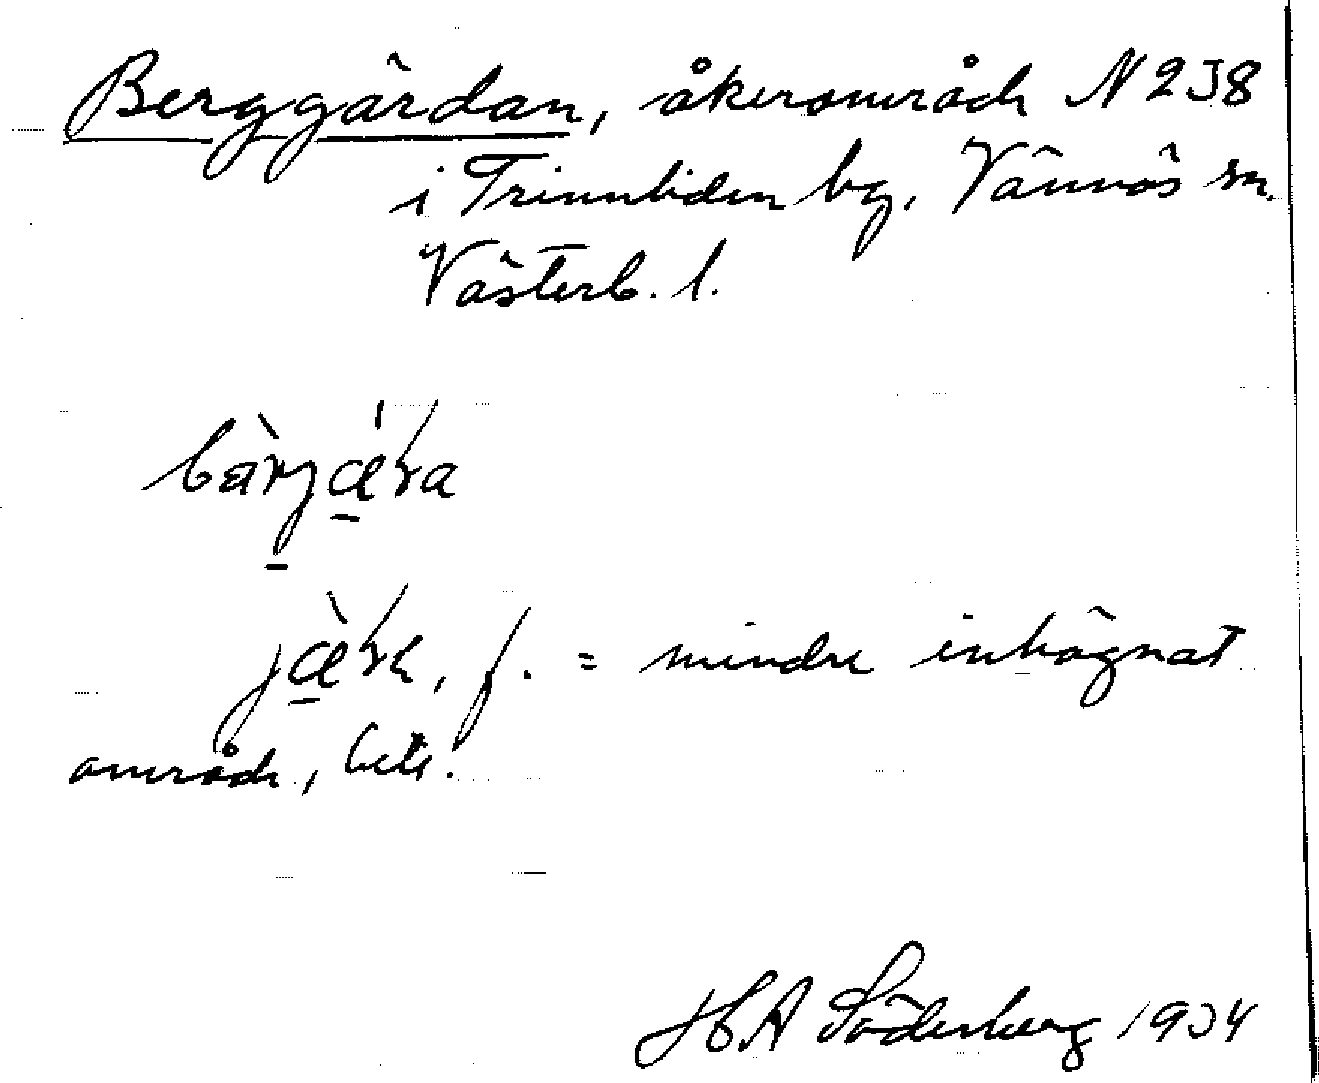 Berggärdan, åkerområde N 238
i Trinnliden by, Vännäs sn.
Västerb. l.
f. = mindre inhägnat
område, bete.
H.A Söderberg 1934